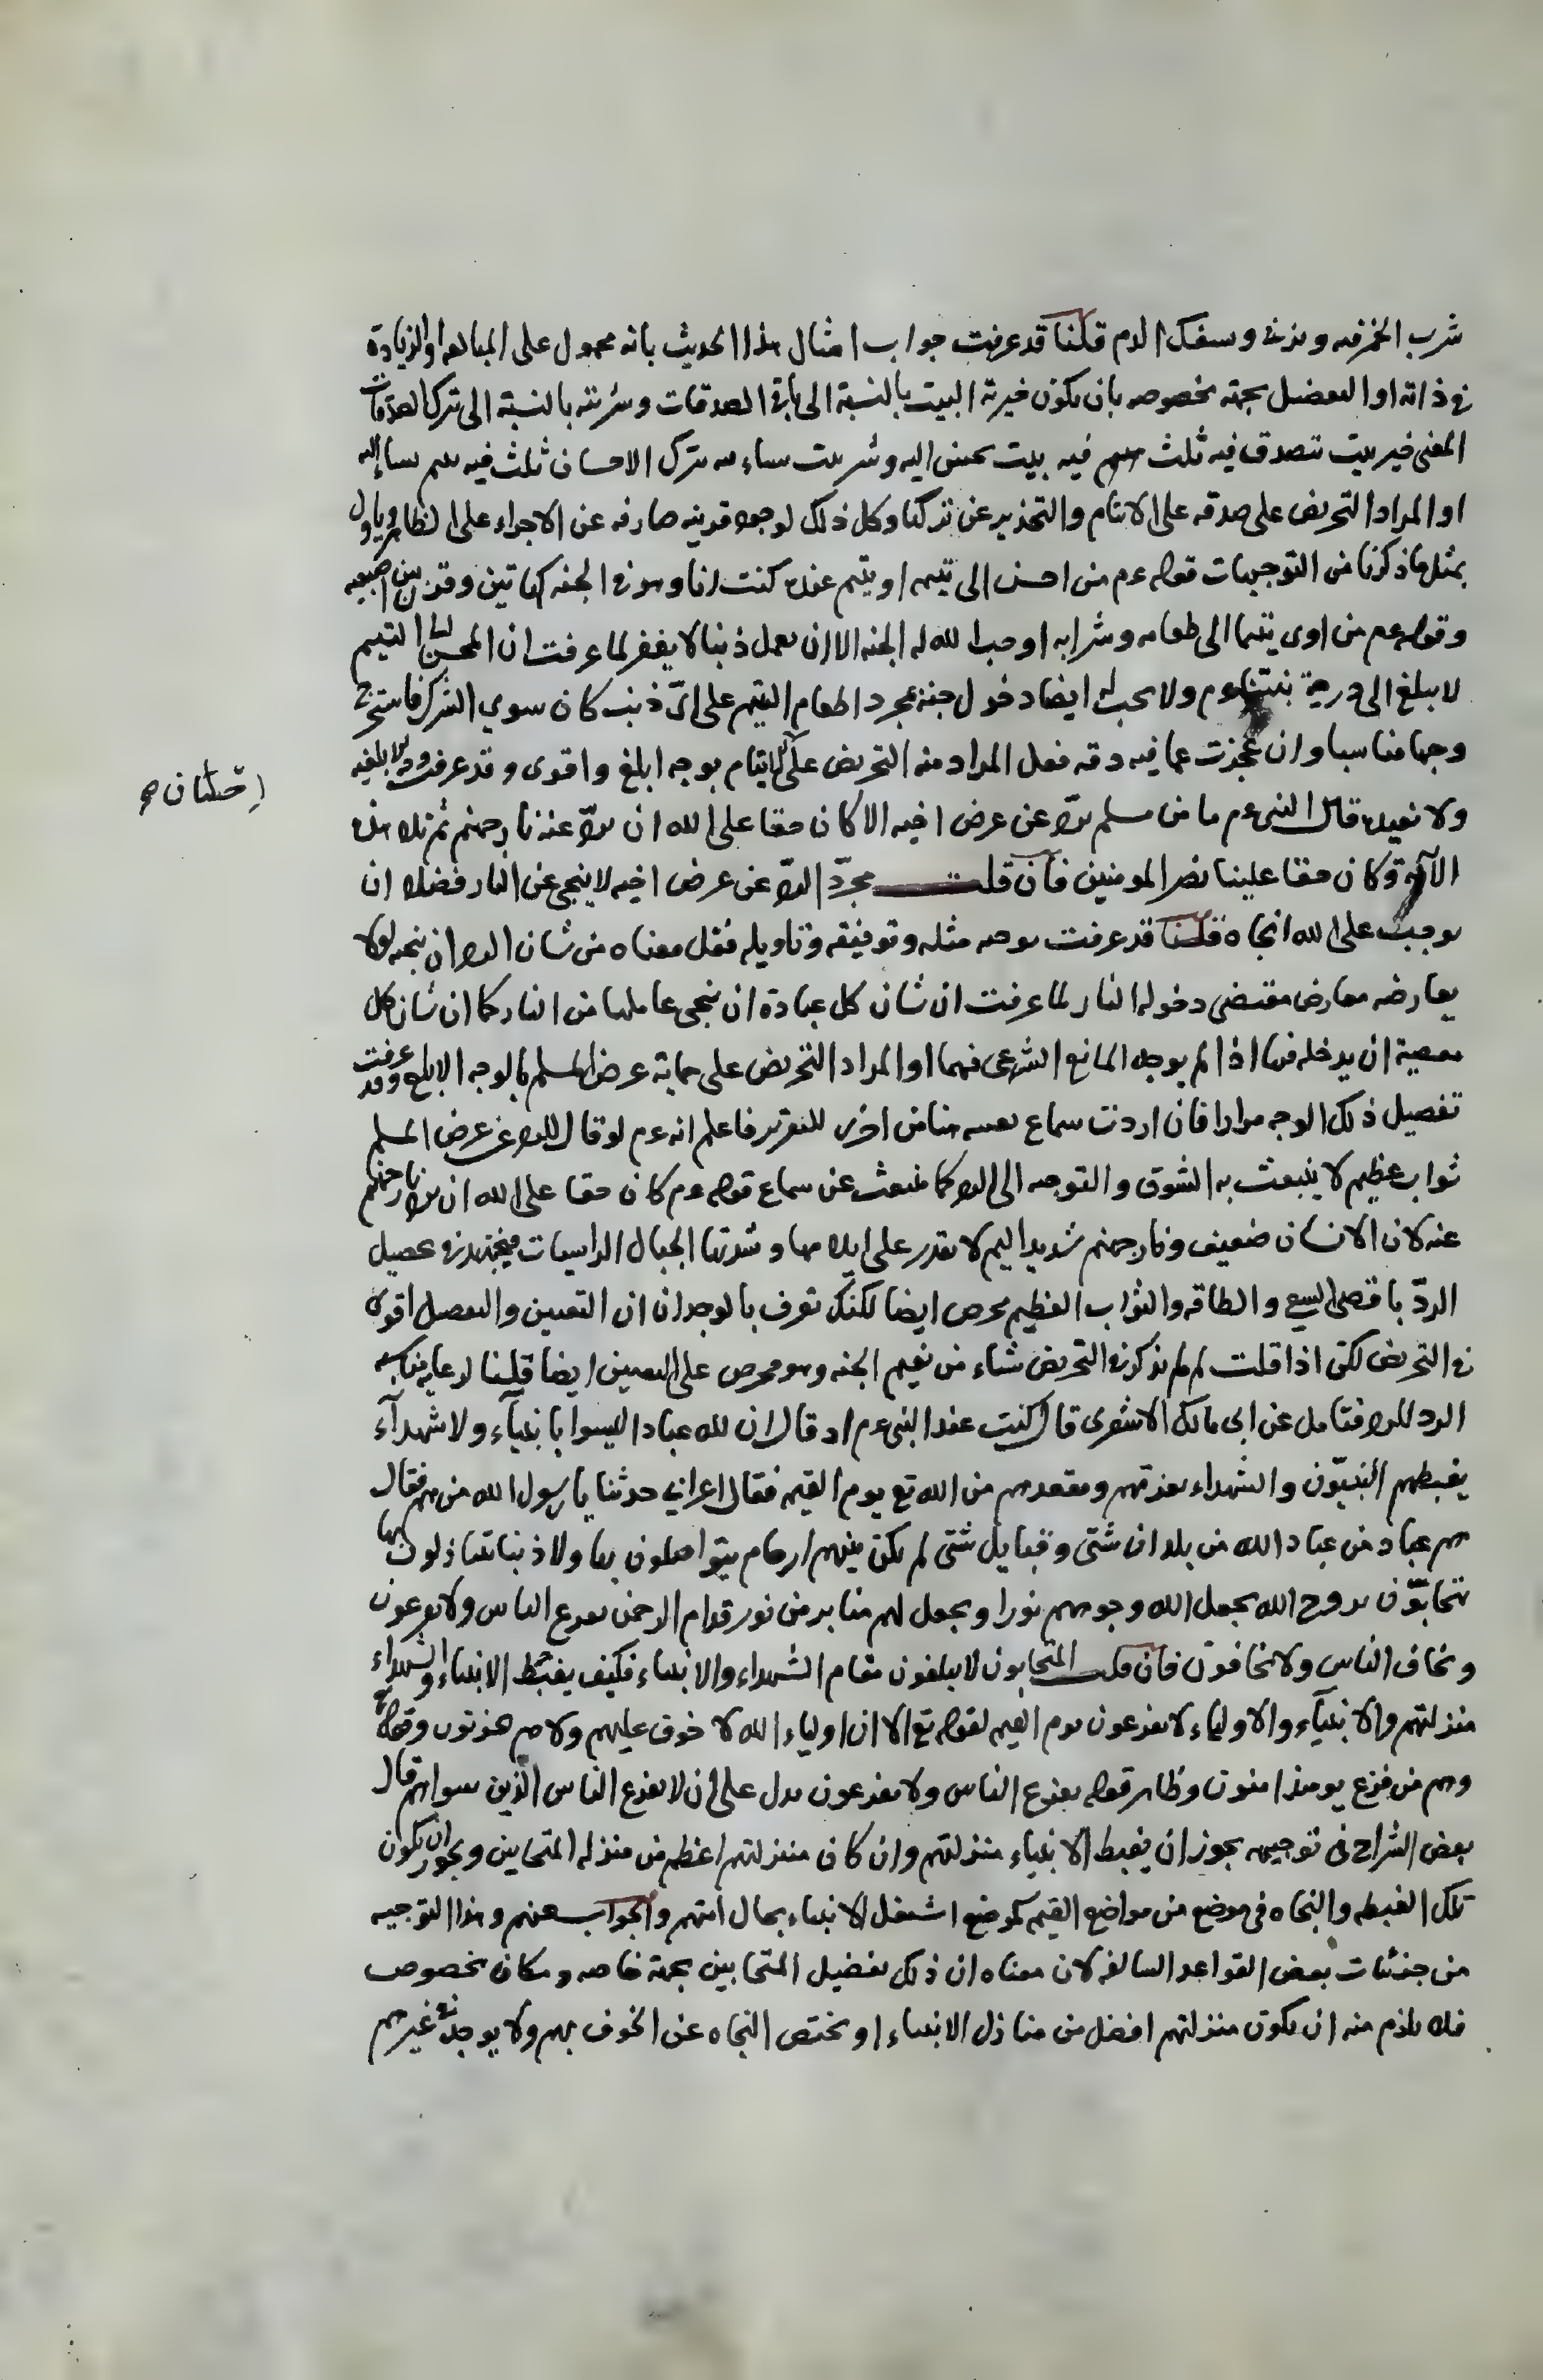 شرب الخمر فيه ويزنى وسفك الدم قلنا قد عرفت جواب امثال هذا الحديث بانه محمول على المبالغه او الزيادة
في ذاته او التفضيل بجهة مخصوصه بان يكون خيرية البيت بالنسبة الى باقى الصدقات وشريته بالنسبة الى ترك الصدقات
المعنى خير بيت تتصدق فيه ثلث فيه بيت يحسن اليه وشر بيت يساء بترك الاحسان ثلث فيه يتيم يساء اليه
او المراد التحريض على صدقه على الايتام والتحذير عن تركها وكل ذلك لوجود قرينه صارفه عن الاجراء على الظاهر وياول
بمثل ما ذكرنا من التوجيهات قوله عم من احسن الى يتيمه او يتيم عنده كنت انا وهو في الجنه كهاتين وقرن بين اصبعيه
وقوله عم من اوى يتيما الى طعامه وشرابه اوجب الله له الجنه الا ان يعمل ذنبا لا يغفر لما عرفت ان المحسن الى اليتيم
لا يبلغ الى درجة نبينا عم ولا يجب له ايضا دخول جنة بمجرد اطعام اليتيم على اىّ ذنب كان سوي الشرك فاستخرج
وجها مناسبا وان عجزت عما فيه دقه فعل المراد منه التحريض على الايتام بوجه ابلغ واقوى وقد عرفت وجه ابلغيه
ولا نعيده قال النبي عم ما من مسلم يردّ عن عرض اخيه الا كان حقا على الله ان يردّ عنه نار جهنم ثم تلا هذه
الآية وكان حقا علينا نصر المومنين فان قلت مجرّد الردّ عن عرض اخيه لا ينجى عن النار فضلا ان
يوجب على الله انجاه قلنا قد عرفت توجيه مثله وتوفيقه وتاويله فقل معناه من شان الرد ان ينجيه لولا
يعارضه معارض مقتضى دخوله النار لما عرفت ان شان كل عبادة ان ينجى عاملها من النار كما ان شان كل
معصية ان يدخله فيها اذا لم يوجد المانع الشرعى فيهما او المراد التحريض على حماية عرض المسلم بالوجه الابلغ وقد عرفت
تفصيل ذلك الوجه مرارا فان اردت سماع نفسه هنا من اخرى للتقرير فاعلم انه عم لو قال للرد عن عرض المسلم
ثواب عظيم لا ينبعث به الشوق والتوجه الى الرد كما ينبعث عن سماع قوله عم كان حقا على الله ان يرد نار جهنم
عنه لان الانسان ضعيف ونار جهنم شديد اليم لا يقدر على ايلامها وشدتها الجبال الراسيات فيجتهد في تحصيل
الردّ باقصى السعي والطاقه والثواب العظيم محرص ايضا لكنك تعرف بالوجدان ان التعيين والتفصيل اقوى
في التحريض لكن اذا قلت لم لم يذكر في التحريض شاء من نعيم الجنه وهو محرص على التعيين ايضا قلنا لرعاية مناسبه
الرد للرد فتامل عن ابى مالك الاشعرى قال كنت عند النبي عم اذ قال ان لله عبادا ليسوا بانبيآء ولا شهدآء
يغبطهم النبيّون والشهداء بقربهم ومقعدهم من الله تع يوم القيمه فقال اعرابي حدثنا يا رسول الله من هم فقال
هم عباد من عباد الله من بلدان شتّى وقبايل شتى لم يكن بينهم ارحام يتواصلون بها ولا دنيا يتباذلون بها
يتحابّون بروح الله يجعل الله وجوههم نورا ويجعل لهم منابر من نور قدام الرحمن يفزع الناس ولا يفزعون
ويخاف الناس ولا يخافون فان قلت المتحابون لا يبلغون مقام الشهداء والانبياء فكيف يغبط الانبياء والشهداء
منزلتهم والانبيآء والاولياء لا يفزعون يوم القيمه لقوله تع الا ان اولياء الله لا خوف عليهم ولا هم يحزنون وقوله تع
وهم من فزع يومئذ امنون وظاهر قوله يفزع الناس ولا يفزعون يدل على ان لا يفزع الناس الّذين سواهم قال
بعض الشراح في توجيهه يجوز ان يغبط الانبياء منزلتهم وان كان منزلتهم اعظم من منزله المتحابين ويجوز ان يكون
تلك الغبطه والنجاه في موضع من مواضع القيمه كموضع اشتغل الانبياء بحال امتهم والجواب عنهم وهذا التوجيه
من جزئيات بعض القواعد السالفه لان معناه ان ذلك تفضيل المتحابين بجهة خاصه ومكان مخصوص
فلا يلزم منه ان يكون منزلتهم افضل من منازل الانبياء او يختص النجاه عن الخوف بهم ولا يوجد في غيرهم